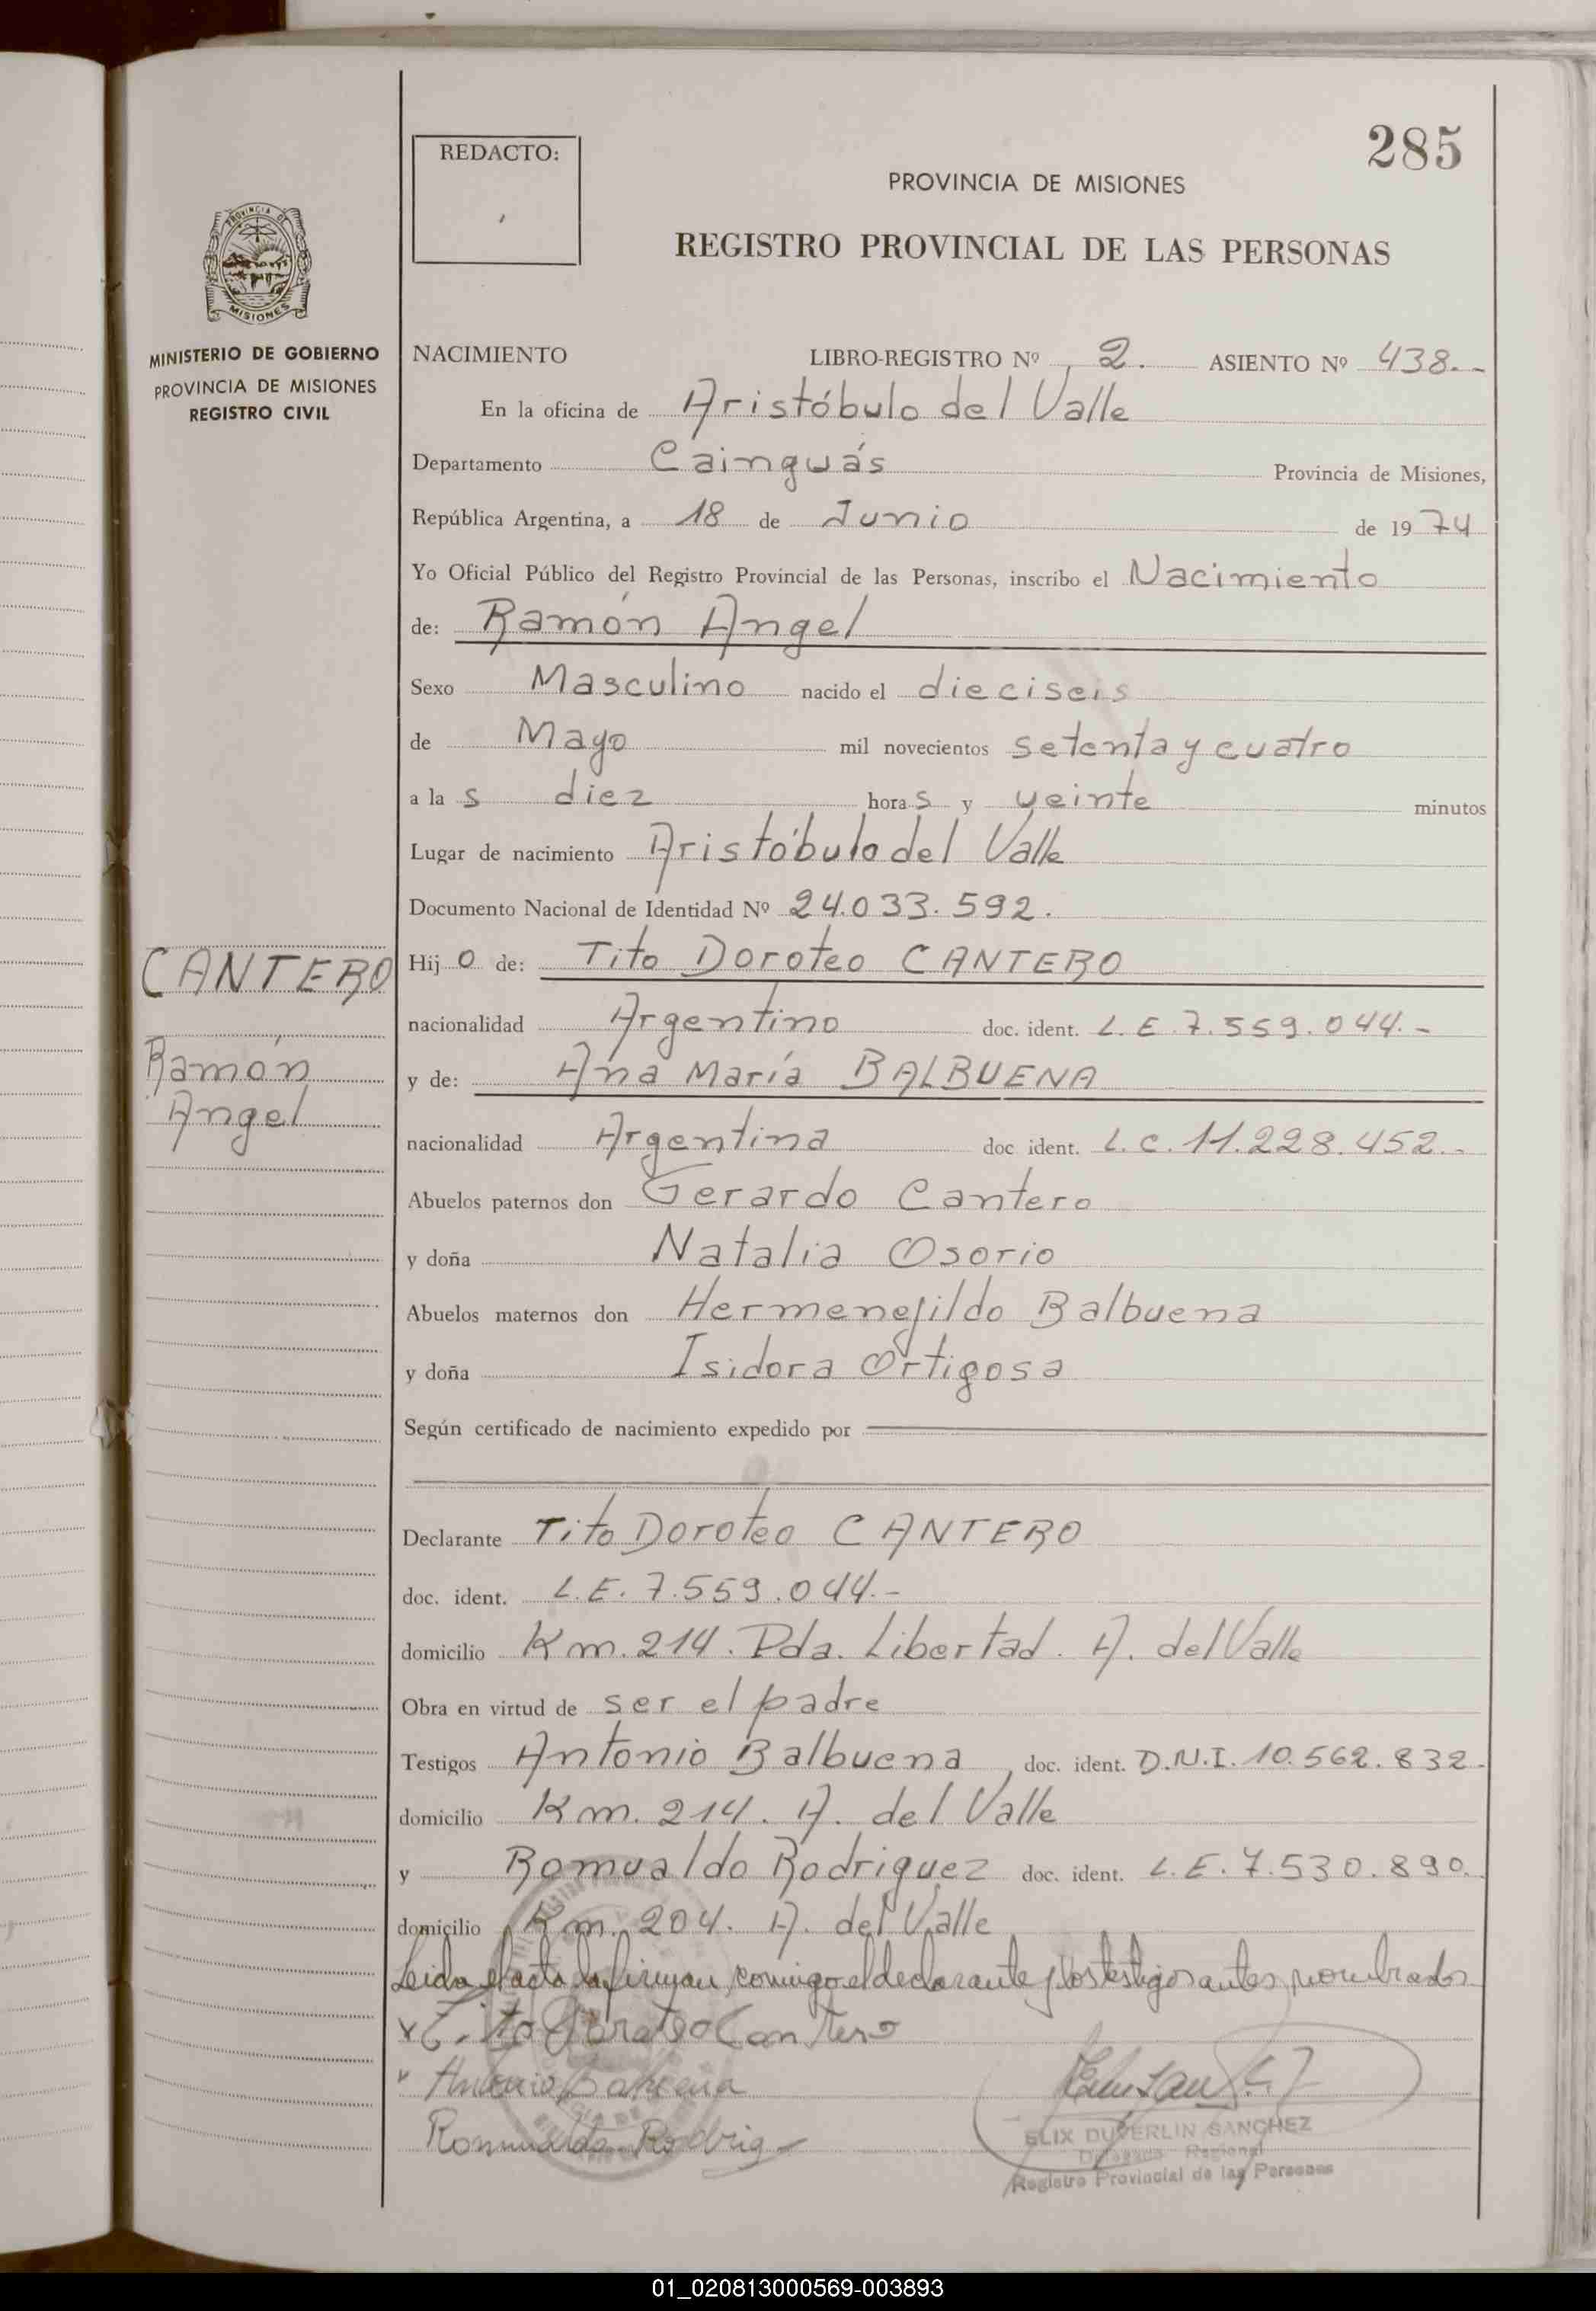 285
REDACTO:
PROVINCIA DE MISIONES
REGISTRO PROVINCIAL DE LAS PERSONAS
PROVINCIA DE
MISIONES
MINISTERIO DE GOBIERNO
PROVINCIA DE MISIONES
REGISTRO CIVIL
NACIMIENTO LIBRO-REGISTRO Nº 2. ASIENTO Nº 438.-
En la oficina de Aristóbulo del Valle
Departamento Cainguás Provincia de Misiones,
República Argentina, a 18 de Junio de 1974
Yo Oficial Público del Registro Provincial de las Personas, inscribo el Nacimiento
de: Ramón Angel
Sexo Masculino nacido el dieciseis
de Mayo mil novecientos setenta y cuatro
a la s diez hora s y veinte minutos
Lugar de nacimiento Aristóbulo del Valle
Documento Nacional de Identidad Nº 24.033.592.
CANTERO
Ramón
Angel
Hij o de: Tito Doroteo CANTERO
nacionalidad Argentino doc. ident. L.E. 7.559.044.-
y de: Ana María BALBUENA
nacionalidad Argentina doc ident. L.C. 11.228.452.-
Abuelos paternos don Gerardo Cantero
y doña Natalia Osorio
Abuelos maternos don Hermenejildo Balbuena
y doña Isidora Ortigosa
Según certificado de nacimiento expedido por
Declarante Tito Doroteo CANTERO
doc. ident. L.E. 7.559.044.-
domicilio Km. 214. Pda. Libertad. A. del Valle
Obra en virtud de ser el padre
Testigos Antonio Balbuena, doc. ident. D.N.I. 10.562.832-
domicilio Km. 214. A. del Valle
y Romualdo Rodriguez doc. ident. L.E. 7.530.890.
domicilio Km. 204. A. del Valle
Leida el acta la firman, comigo el declarante y los testigos antes nombrados
x Tito Doroteo Cantero
Antonio Balbuena
Romualdo Rodrig
ELIX DUVERLIN SANCHEZ
Delegado Regional
Registro Provincial de las Personas
01_020813000569-003893